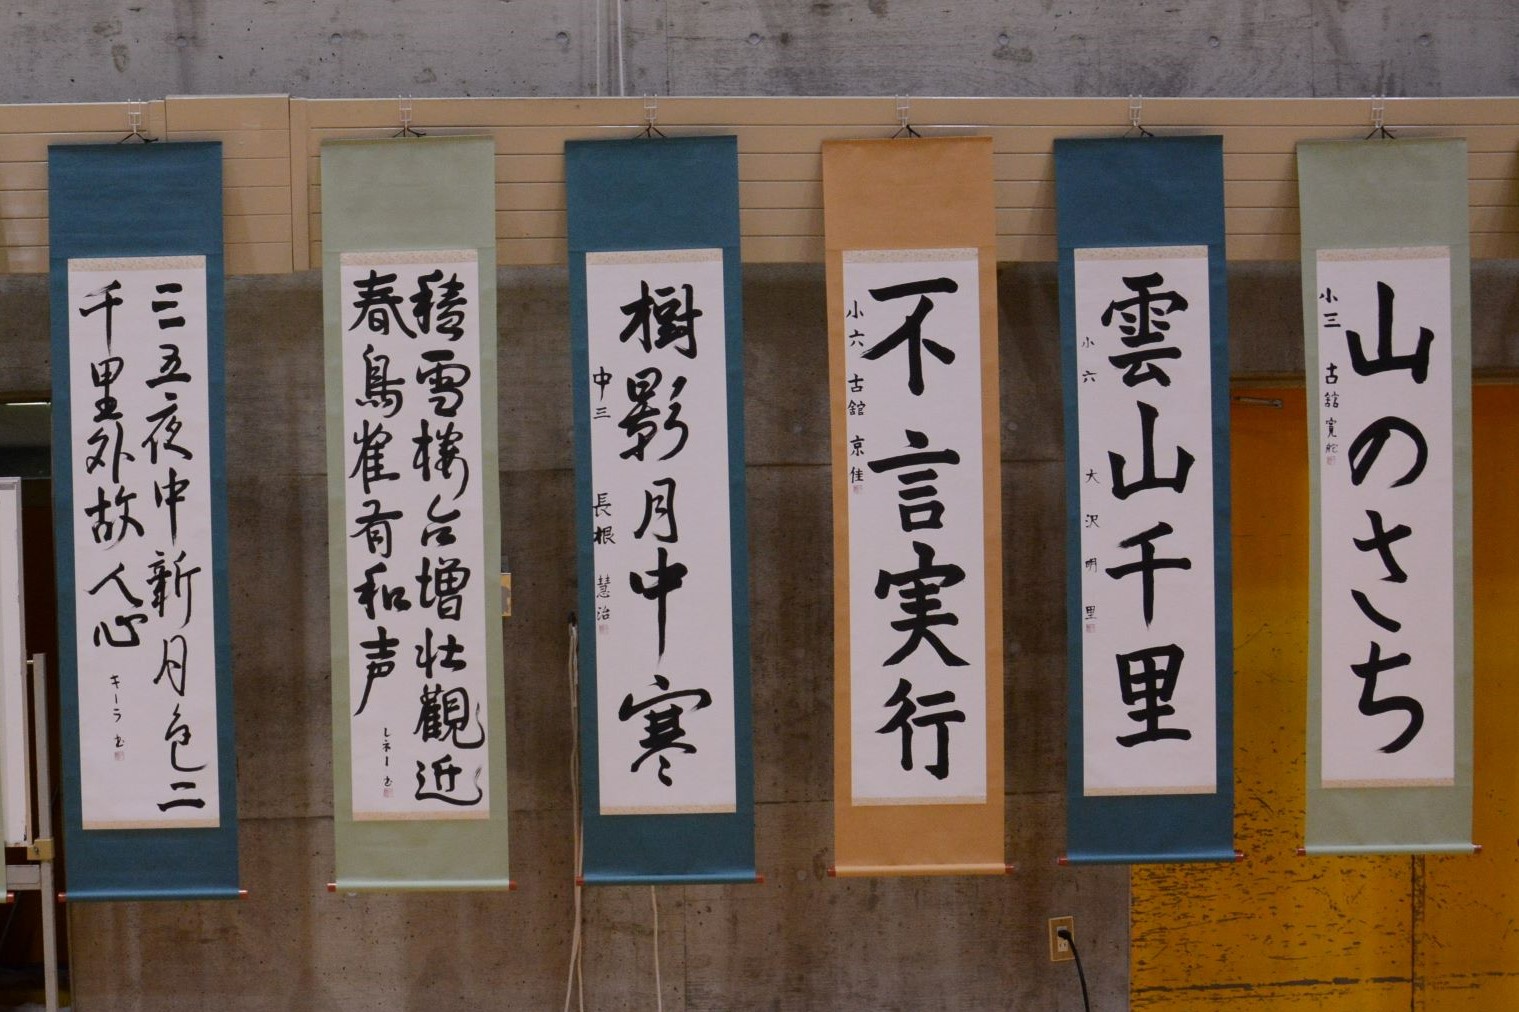 山のさち
小三 古舘 寛
雲山千里
小六 大沢 明里
不言実行
小六 古舘 京佳
樹影月中寒
中三 長根 慧治
積雪楼台増壮觀近
春鳥雀有和声
レネー 書
三五夜中新月色二
千里外故人心
キーラ 書